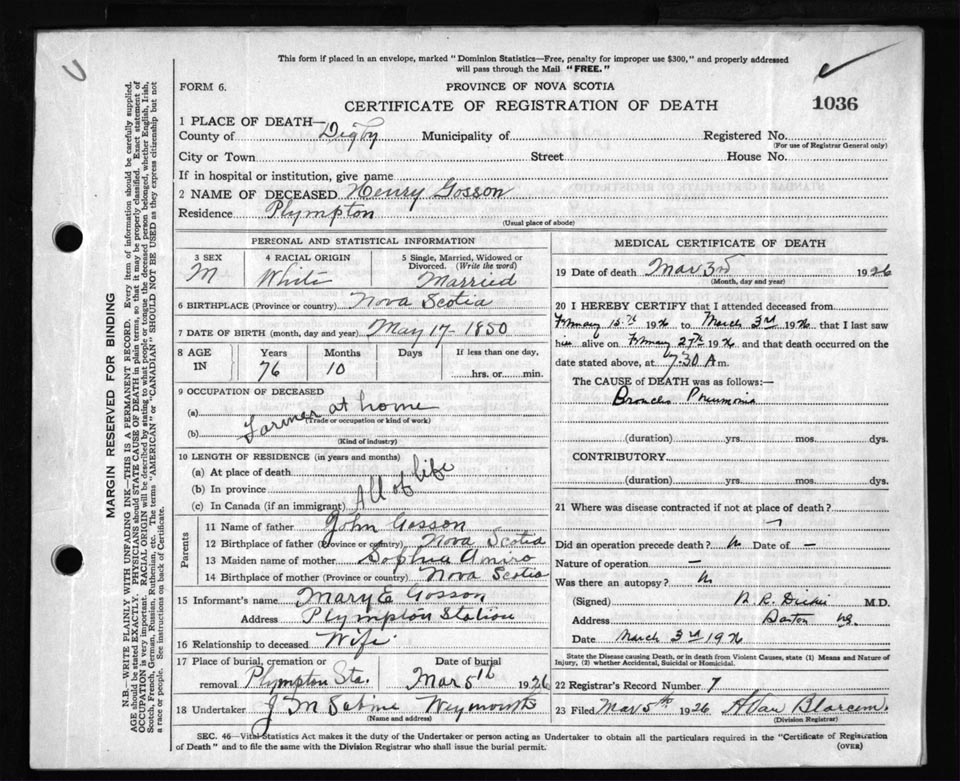 This form if placed in an envelope, marked "Dominion Statistics—Free, penalty for improper use $300," and properly addressed
will pass through the Mail "FREE."
FORM 6.
PROVINCE OF NOVA SCOTIA
CERTIFICATE OF REGISTRATION OF DEATH
1036
1 PLACE OF DEATH—
County of Digby Municipality of Registered No.
(For use of Registrar General only)
City or Town Street House No.
If in hospital or institution, give name
2 NAME OF DECEASED Henry Gosson
Residence Plympton
(Usual place of abode)
PERSONAL AND STATISTICAL INFORMATION
3 SEX 4 RACIAL ORIGIN 5 Single, Married, Widowed or
Divorced. (Write the word)
M White Married
6 BIRTHPLACE (Province or country) Nova Scotia
7 DATE OF BIRTH (month, day and year) May 17-1850
8 AGE IN Years Months Days If less than one day,
76 10 hrs. or min.
9 OCCUPATION OF DECEASED
(a) Farmer at home
(Trade or occupation or kind of work)
(b)
(Kind of industry)
10 LENGTH OF RESIDENCE (in years and months)
(a) At place of death
(b) In province All of life
(c) In Canada (if an immigrant)
Parents
11 Name of father John Gosson
12 Birthplace of father (Province or country) Nova Scotia
13 Maiden name of mother Sophia Amiro
14 Birthplace of mother (Province or country) Nova Scotia
15 Informant's name Mary E Gosson
Address Plympton Station
16 Relationship to deceased Wife
17 Place of burial, cremation or Date of burial
removal Plympton Sta. Mar 5th 1926
18 Undertaker J M Sabine Weymouth
(Name and address)
MEDICAL CERTIFICATE OF DEATH
19 Date of death Mar 3rd 1926
(Month, day and year)
20 I HEREBY CERTIFY that I attended deceased from
February 15th 1926 to March 3rd 1926, that I last saw
him alive on February 27th 1926 and that death occurred on the
date stated above, at 7.30 A m.
The CAUSE of DEATH was as follows:—
Broncho Pneumonia
(duration) yrs. mos. dys.
CONTRIBUTORY
(duration) yrs. mos. dys.
21 Where was disease contracted if not at place of death?
Did an operation precede death? Date of —
Nature of operation —
Was there an autopsy?
(Signed) Dickie M.D.
Address
Date March 3rd 1926
State the Disease causing Death, or in death from Violent Causes, state (1) Means and Nature of
Injury, (2) whether Accidental, Suicidal or Homicidal.
22 Registrar's Record Number 7
23 Filed Mar 5th 1926
(Division Registrar)
SEC. 46—Vital Statistics Act makes it the duty of the Undertaker or person acting as Undertaker to obtain all the particulars required in the "Certificate of Registration
of Death" and to file the same with the Division Registrar who shall issue the burial permit.
(OVER)
MARGIN RESERVED FOR BINDING
N.B.—WRITE PLAINLY WITH UNFADING INK—THIS IS A PERMANENT RECORD. Every item of information should be carefully supplied.
AGE should be stated EXACTLY. PHYSICIANS should STATE CAUSE OF DEATH in plain terms, so that it may be properly classified. Exact statement of
OCCUPATION is very important. RACIAL ORIGIN will be described by stating to what people or tongue the deceased person belonged, whether English, Irish,
Scotch, French, German, Russian, Ruthenian, etc. The terms "AMERICAN" or "CANADIAN" SHOULD NOT BE USED as they express citizenship but not
a race or people. See instructions on back of Certificate.